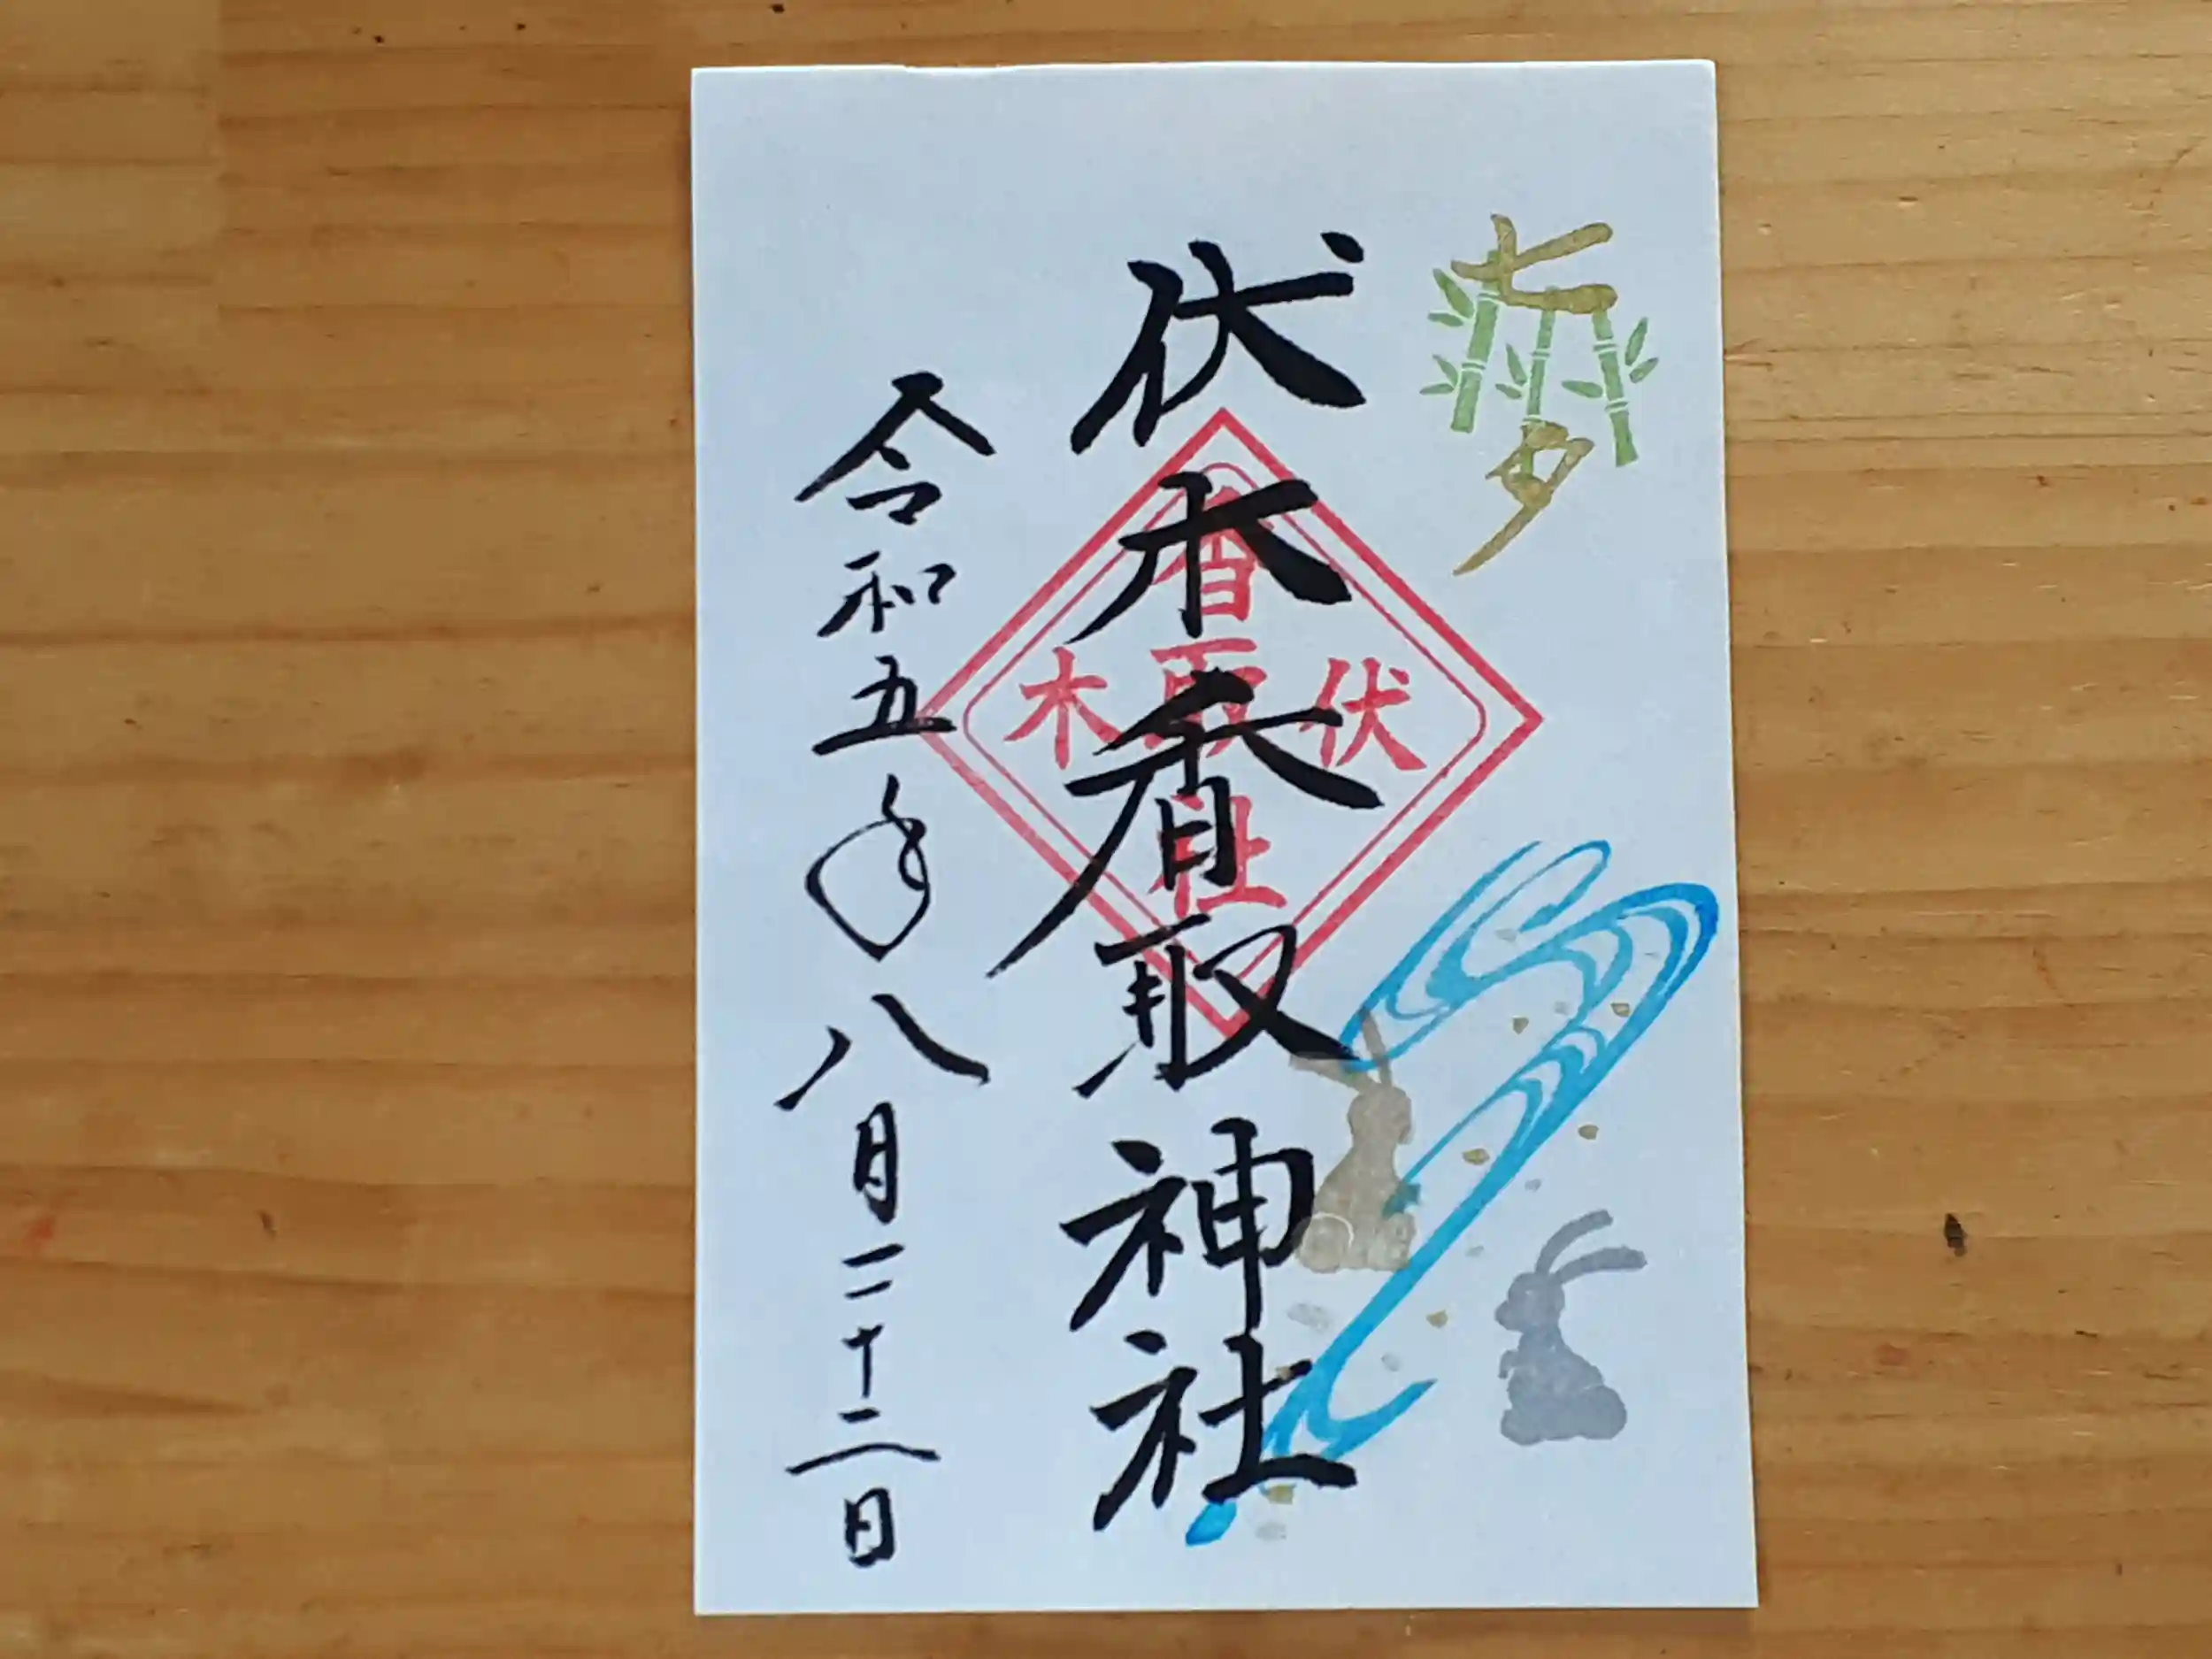 七夕
伏木香取神社
伏木
香取社
令和五年八月二十二日